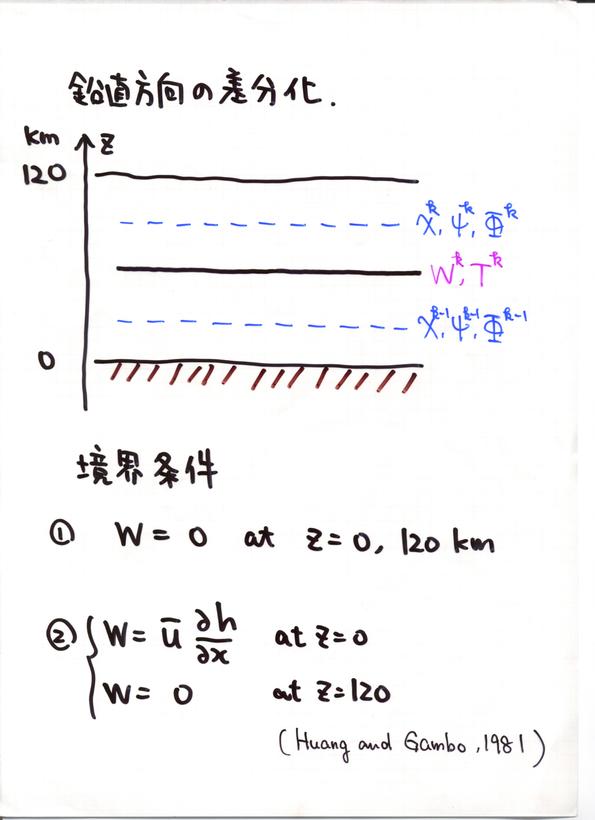 鉛直方向の差分化.
km
z
120
χᵏ, ψᵏ, Φᵏ
Wᵏ, Tᵏ
χᵏ⁻¹, ψᵏ⁻¹, Φᵏ⁻¹
0
境界条件
① W = 0 at z = 0, 120 km
② { W = ū ∂h/∂x at z = 0
W = 0 at z = 120
(Huang and Gambo, 1981)